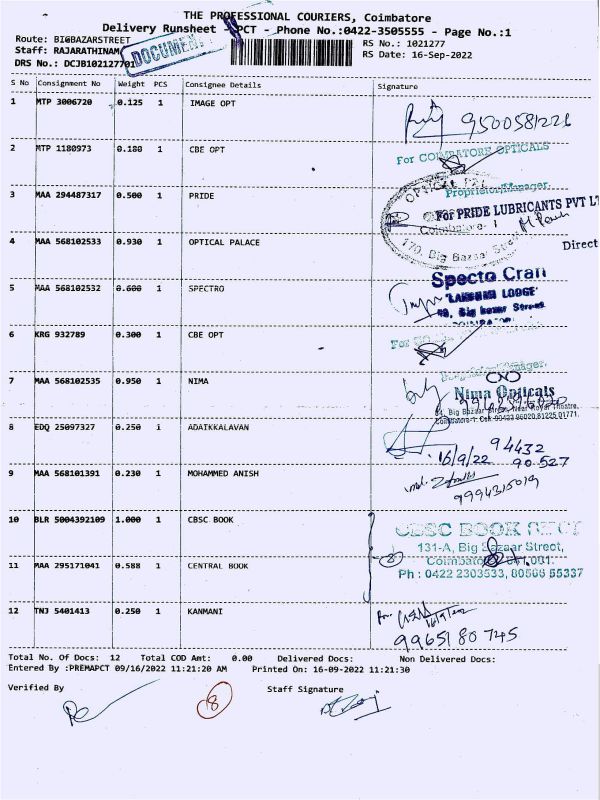 THE PROFESSIONAL COURIERS, Coimbatore
Delivery Runsheet - PCT - Phone No.:0422-3505555 - Page No.:1
Route: BIGBAZARSTREET
Staff: RAJARATHINAM
DRS No.: DCJB102127701
DOCUMENT
RS No.: 1021277
RS Date: 16-Sep-2022
S No Consignment No Weight PCS Consignee Details Signature
1 MTP 3006720 0.125 1 IMAGE OPT
9500581221
2 MTP 1180973 0.180 1 CBE OPT
For COIMBATORE OPTICALS
Proprietor/Manager.
3 MAA 294487317 0.500 1 PRIDE
For PRIDE LUBRICANTS PVT LT
Coimbatore- 1
4 MAA 568102533 0.930 1 OPTICAL PALACE
170, Big Bazaar Street
Direct
5 MAA 568102532 0.600 1 SPECTRO
Specto Craft
"LAKSHMI LODGE"
Big bazaar Street
6 KRG 932789 0.300 1 CBE OPT
For
7 MAA 568102535 0.950 1 NIMA
Nima Opticals
Big Bazaar Street, Near Royal Theatre,
Coimbatore-1. Cell: 90423 96020, 81225 01771.
8 EDQ 25097327 0.250 1 ADAIKKALAVAN
16/9/22 94432
90527
9 MAA 568101391 0.230 1 MOHAMMED ANISH
9994315019
10 BLR 5004392109 1.000 1 CBSC BOOK
CBSC BOOK
131-A, Big Bazaar Street,
11 MAA 295171041 0.588 1 CENTRAL BOOK
8
Coimbatore - 641 001.
Ph : 0422 2303533, 80566 55337
12 TNJ 5401413 0.250 1 KANMANI
99651 80745
Total No. Of Docs: 12 Total COD Amt: 0.00 Delivered Docs: Non Delivered Docs:
Entered By :PREMAPCT 09/16/2022 11:21:20 AM Printed On: 16-09-2022 11:21:30
Verified By Staff Signature
8